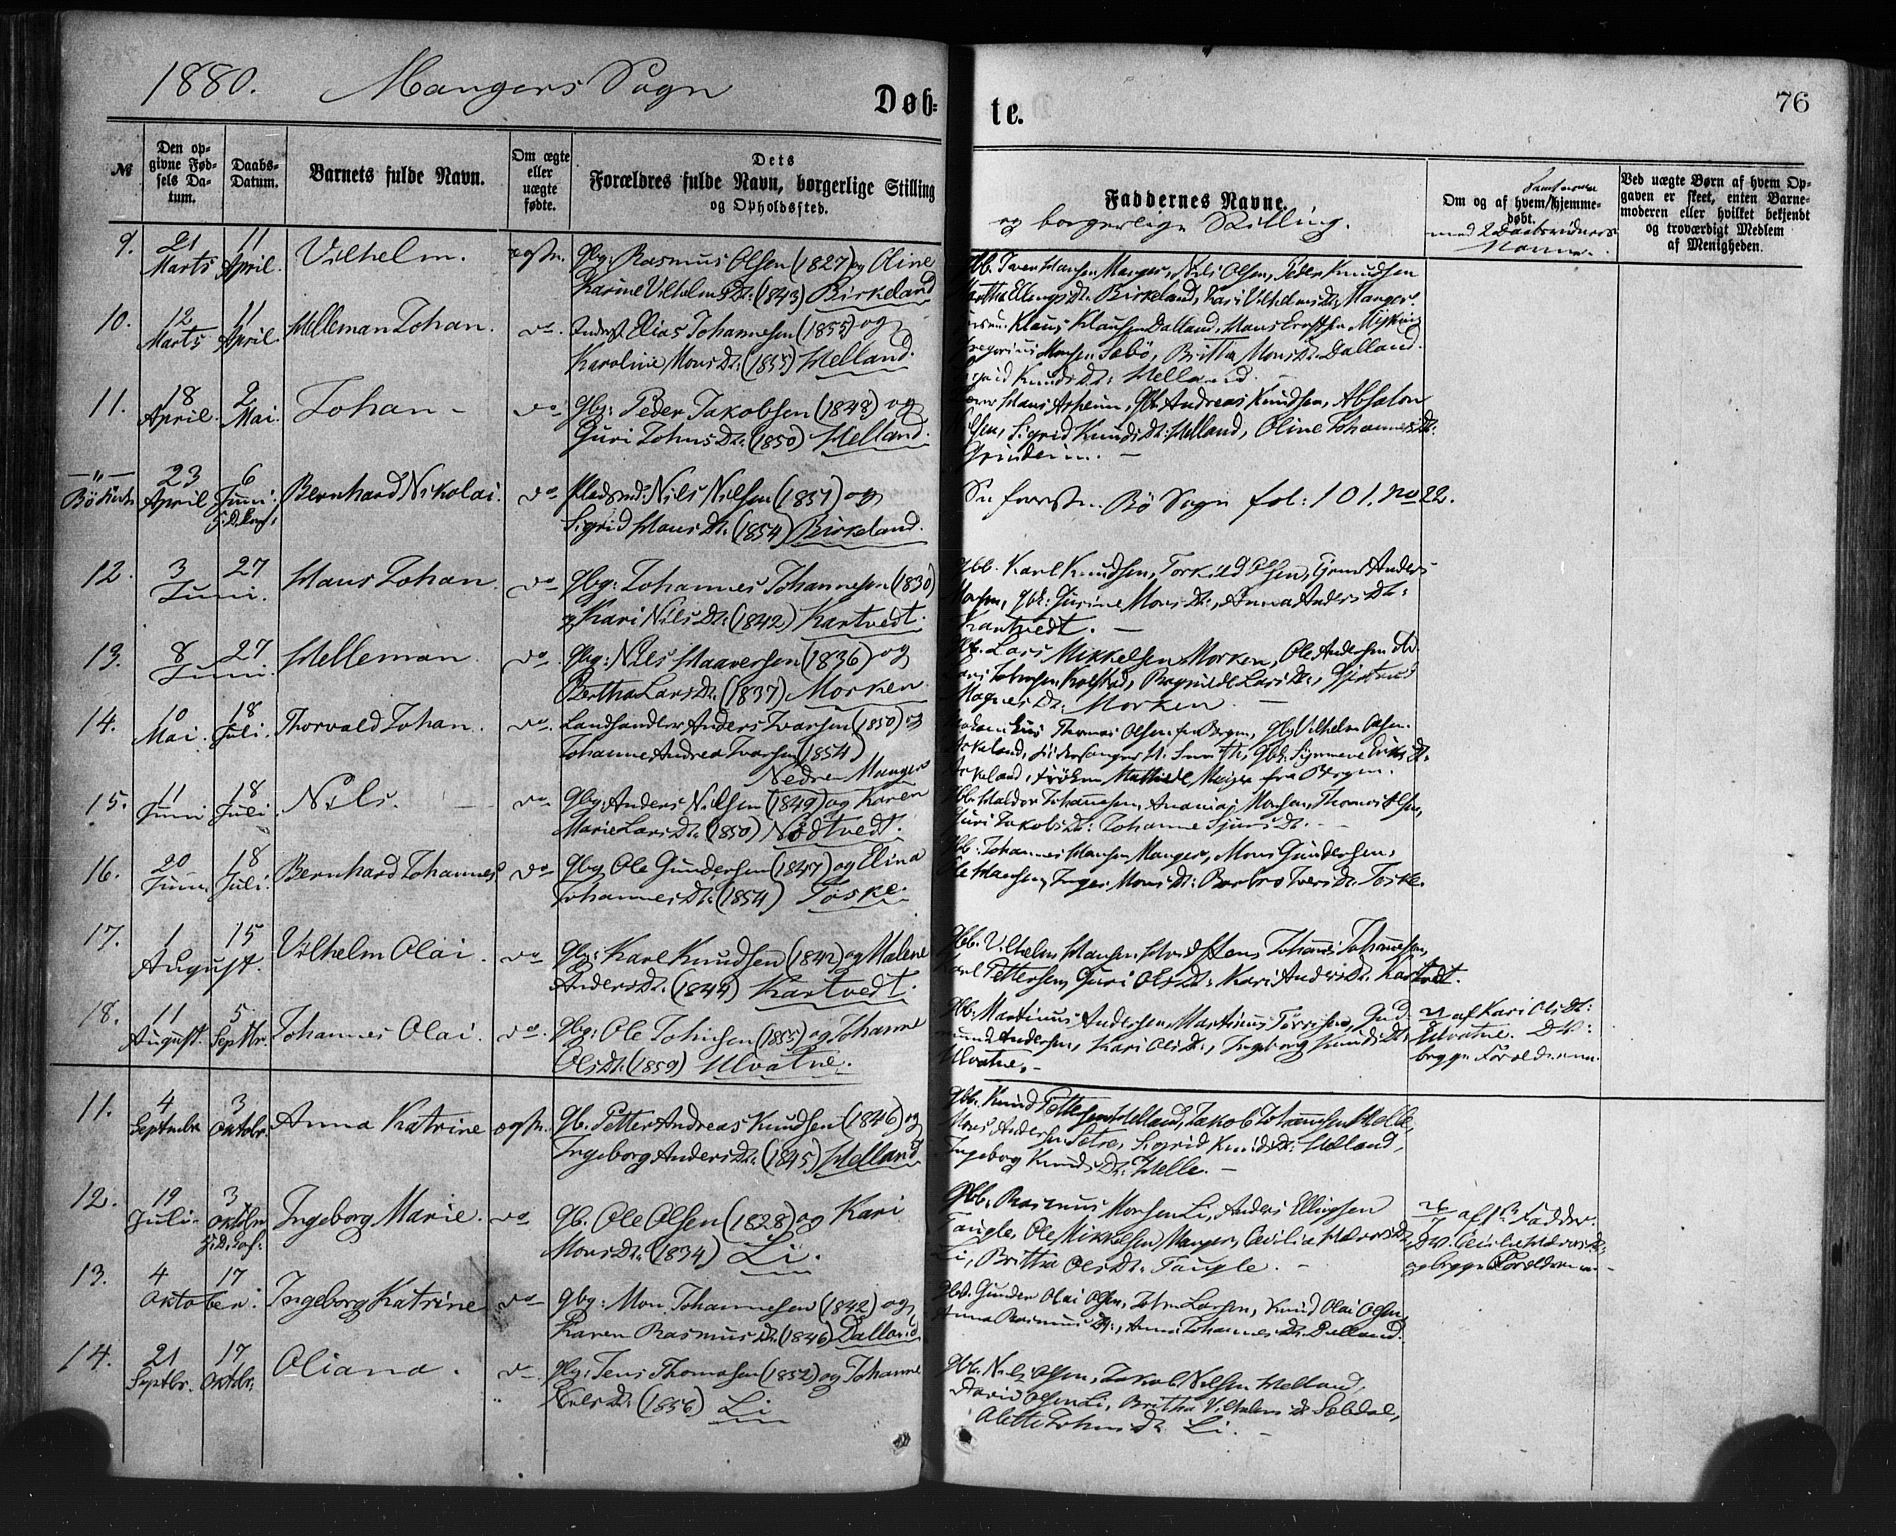 1880. Mangers Sogn
Døb-
te.
76
№
Den op-
givne Fød-
sels Da-
tum.
Daabs-
Datum.
Barnets fulde Navn.
Om ægte
eller
uægte
fødte.
Dets
Forældres fulde Navn, borgerlige Stilling
og Opholdssted.
Faddernes Navne.
og borgerlige Stilling.
Om og af hvem hjemme-
døbt.
med 2 Daabsvidners
Navne.
Ved uægte Børn af hvem Op-
gaven er skeet, enten Barne-
moderen eller hvilket bekjendt
og troværdigt Medlem
af Menigheden.
9. 21 Marts 11 April. Vilhelm. ægte. Gbg: Rasmus Olsen (1827) og Oline
Karine Vilhelms Dt. (1843) Birkeland
Gbb. Iver Hansen Manger, Nils Olsen, Peder Knudsen
Martha Ellings Dt. Birkeland, Kari Vilhelms Dt. Manger.
10. 12 Marts 11 April. Helleman Johan. do. Inderst Elias Johannesen (1855) og
Karoline Mons Dt: (1855) Helland.
Klaus Klausen Dalland, Hans
Gregorius Monsen Sæbö, Britta Mons Dt. Dalland.
Sigrid Knuds Dt: Helland. –
11. 18 April. 2 Mai. Johan – do. gbg: Peder Jakobsen (1848) og
Guri Johns Dt. (1850) Helland.
Hans Askeim, Gbb. Andreas Knudsen, Absalon
Olsen, Sigrid Knuds Dt: Helland, Oline Johannes Dt.
Grindeim. –
–"– Bö Kirke 23 April 6 Juni. Bernhard Nikolai. do. Pladsmd: Nils Nilsen (1851) og
Sigrid Hans Dt. (1854) Birkeland.
Bö Sogn fol: 101. no 22.
12. 3 27 Juni. Hans Johan do. gbg: Johannes Johannesen (1830)
og Kari Nils Dt. (1842) Kartvedt.
Gbb. Karl Knudsen, Torkild Olsen, Anders
Monsen, Gurine Mons Dt., Anna Anders Dt:
Kartvedt. –
13. 8 27 Juni. Helleman. do. gbg: Nils Haaversen (1836) og
Bertha Lars Dt. (1837) Morken.
Gbb. Lars Mikkelsen Morken, Ole Andersen
Lars Johnsen Kolstad, Bagnilde Lars Dt.,
Magnes Dt. Morken. –
14. 10 Mai. 18 Juli. Thorvald Johan. do. Landhandler Anders Ivarsen (1850) og
Johanne Andrea Ivarsen (1854)
Nedre Manger
Thomas Olsen fra Bergen, Gbg Vilhelm Olsen
Askeland, Gbk. Synneve
Askeland, Fröken Mathilde fra Bergen.
15. 11 Juni 18 Juli. Nils. – do. gbg: Anders Nilsen (1849) og Karen
Marie Lars Dt. (1850) Nödtvedt.
Gbb. Haldor Johannesen, Ananias Monsen, Thomas Olsen,
Guri Jakobs Dt: Johanne Sjurs Dt. –
16. 20 Juni. 18 Juli. Bernhard Johannes do gbg Ole Gundersen (1847) og Elina
Johannes Dt: (1854) Toske.
Gbb. Johannes Hansen Manger, Mons Gundersen,
Ole Hansen, Inger Mons Dt: Barbro Ivers Dt. Toske.
17. 1 15 August. Vilhelm Olai. do gbg: Karl Knudsen (1842) og Malene
Anders Dt. (1844) Kartvedt.
Gbb. Vilhelm Hansen Johannes Johannesen,
Karl Pettersen, Guri Ols Dt: Kari Anders Dt. Kartvedt.
18. 11 August. 5 Septbr. Johannes Olai. do. gbg: Ole Johnsen (1855) og Johanne
Ols Dt. (1859) Ulvatne.
Gbb. Martinus Andersen, Martinus Torrisen, Gud
mund Andersen, Kari Ols Dt., Ingeborg Knuds Dt:
Ulvatne. –
af Kari Ols Dt:
Ulvatne. DV:
begge Forældrene.
11. 4 September 3 Oktobr. Anna Katrine ægte. gb. Petter Andreas Knudsen (1846) og
Ingeborg Anders Dt. (1845) Helland
Gbb. Knud Pettersen Helland, Jakob Johannesen Helle,
Mons Andersen Sætre, Sigrid Knuds Dt: Helland,
Ingeborg Knuds Dt. Helle. –
12. 19 Juli. 3 Oktobr. Ingeborg Marie. do gb. Ole Olsen (1828) og Kari
Mons Dt. (1834) Li.
Gbb. Rasmus Monsen Li, Anders Ellingsen
Taugle, Ole Mikkelsen Manger, Cecilia
Li, Britha Ols Dt. Taugle. –
26/7 af 1ste Fadder.
DV. Cecilie
og begge Forældrene –
13. 4 17 Oktober. Ingeborg Katrine do gbg: Mons Johannesen (1842) og
Karen Rasmus Dt. (1846) Dalland
Gbb. Gunder Olai Olsen, John Larsen, Knud Olai Olsen,
Anna Rasmus Dt., Anna Johannes Dt. Dalland.
14. 21 Septbr. 17 Oktbr. Oliana. do gbg: Jens Thomasen (1852) og Johanne
Nils Dt: (1856) Li
Gbb. Nils Olsen, Jakob Nilsen Helland,
David Olsen Li, Britha Vilhelms Dt
Alette Johns Dt. Li. –